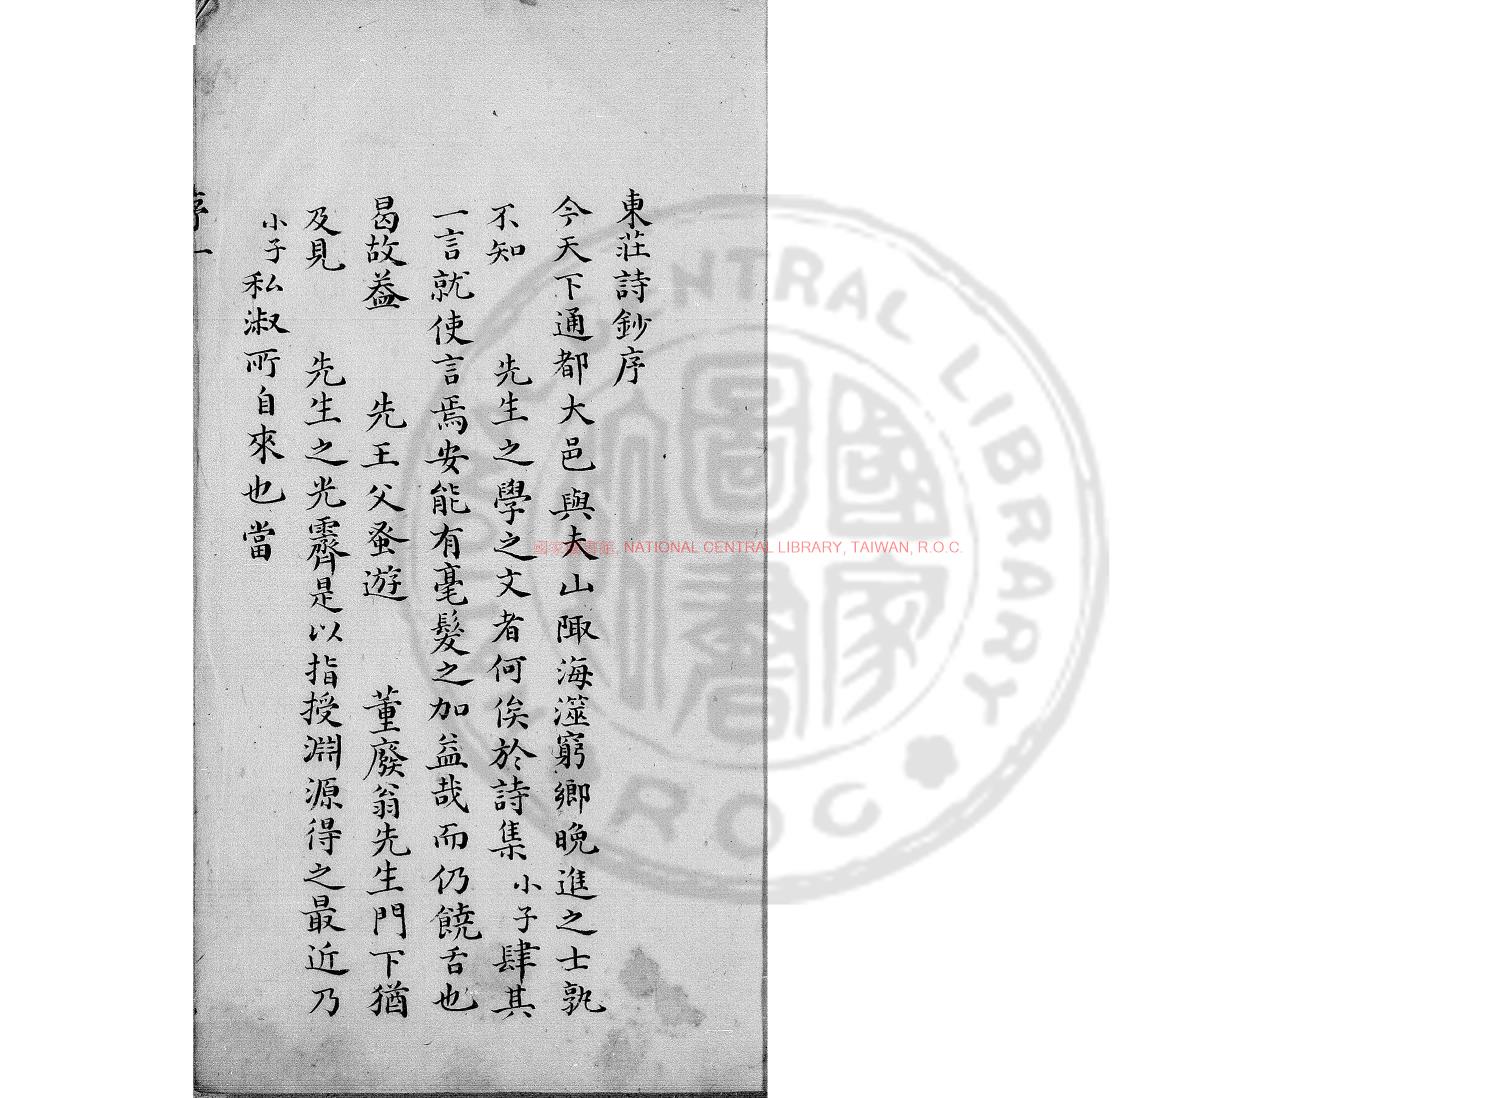 東莊詩鈔序
今天下通都大邑與夫山陬海澨窮鄉晚進之士孰
不知　先生之學之文者何俟於詩集小子肆其
一言就使言焉安能有毫髮之加益哉而仍饒舌也
曷故葢　先王父蚤遊　董廢翁先生門下猶
及見　先生之光霽是以指授淵源得之最近乃
小子私淑所自來也當
序一
國家圖書館, NATIONAL CENTRAL LIBRARY, TAIWAN, R.O.C.
CENTRAL LIBRARY
R O C
國家圖書